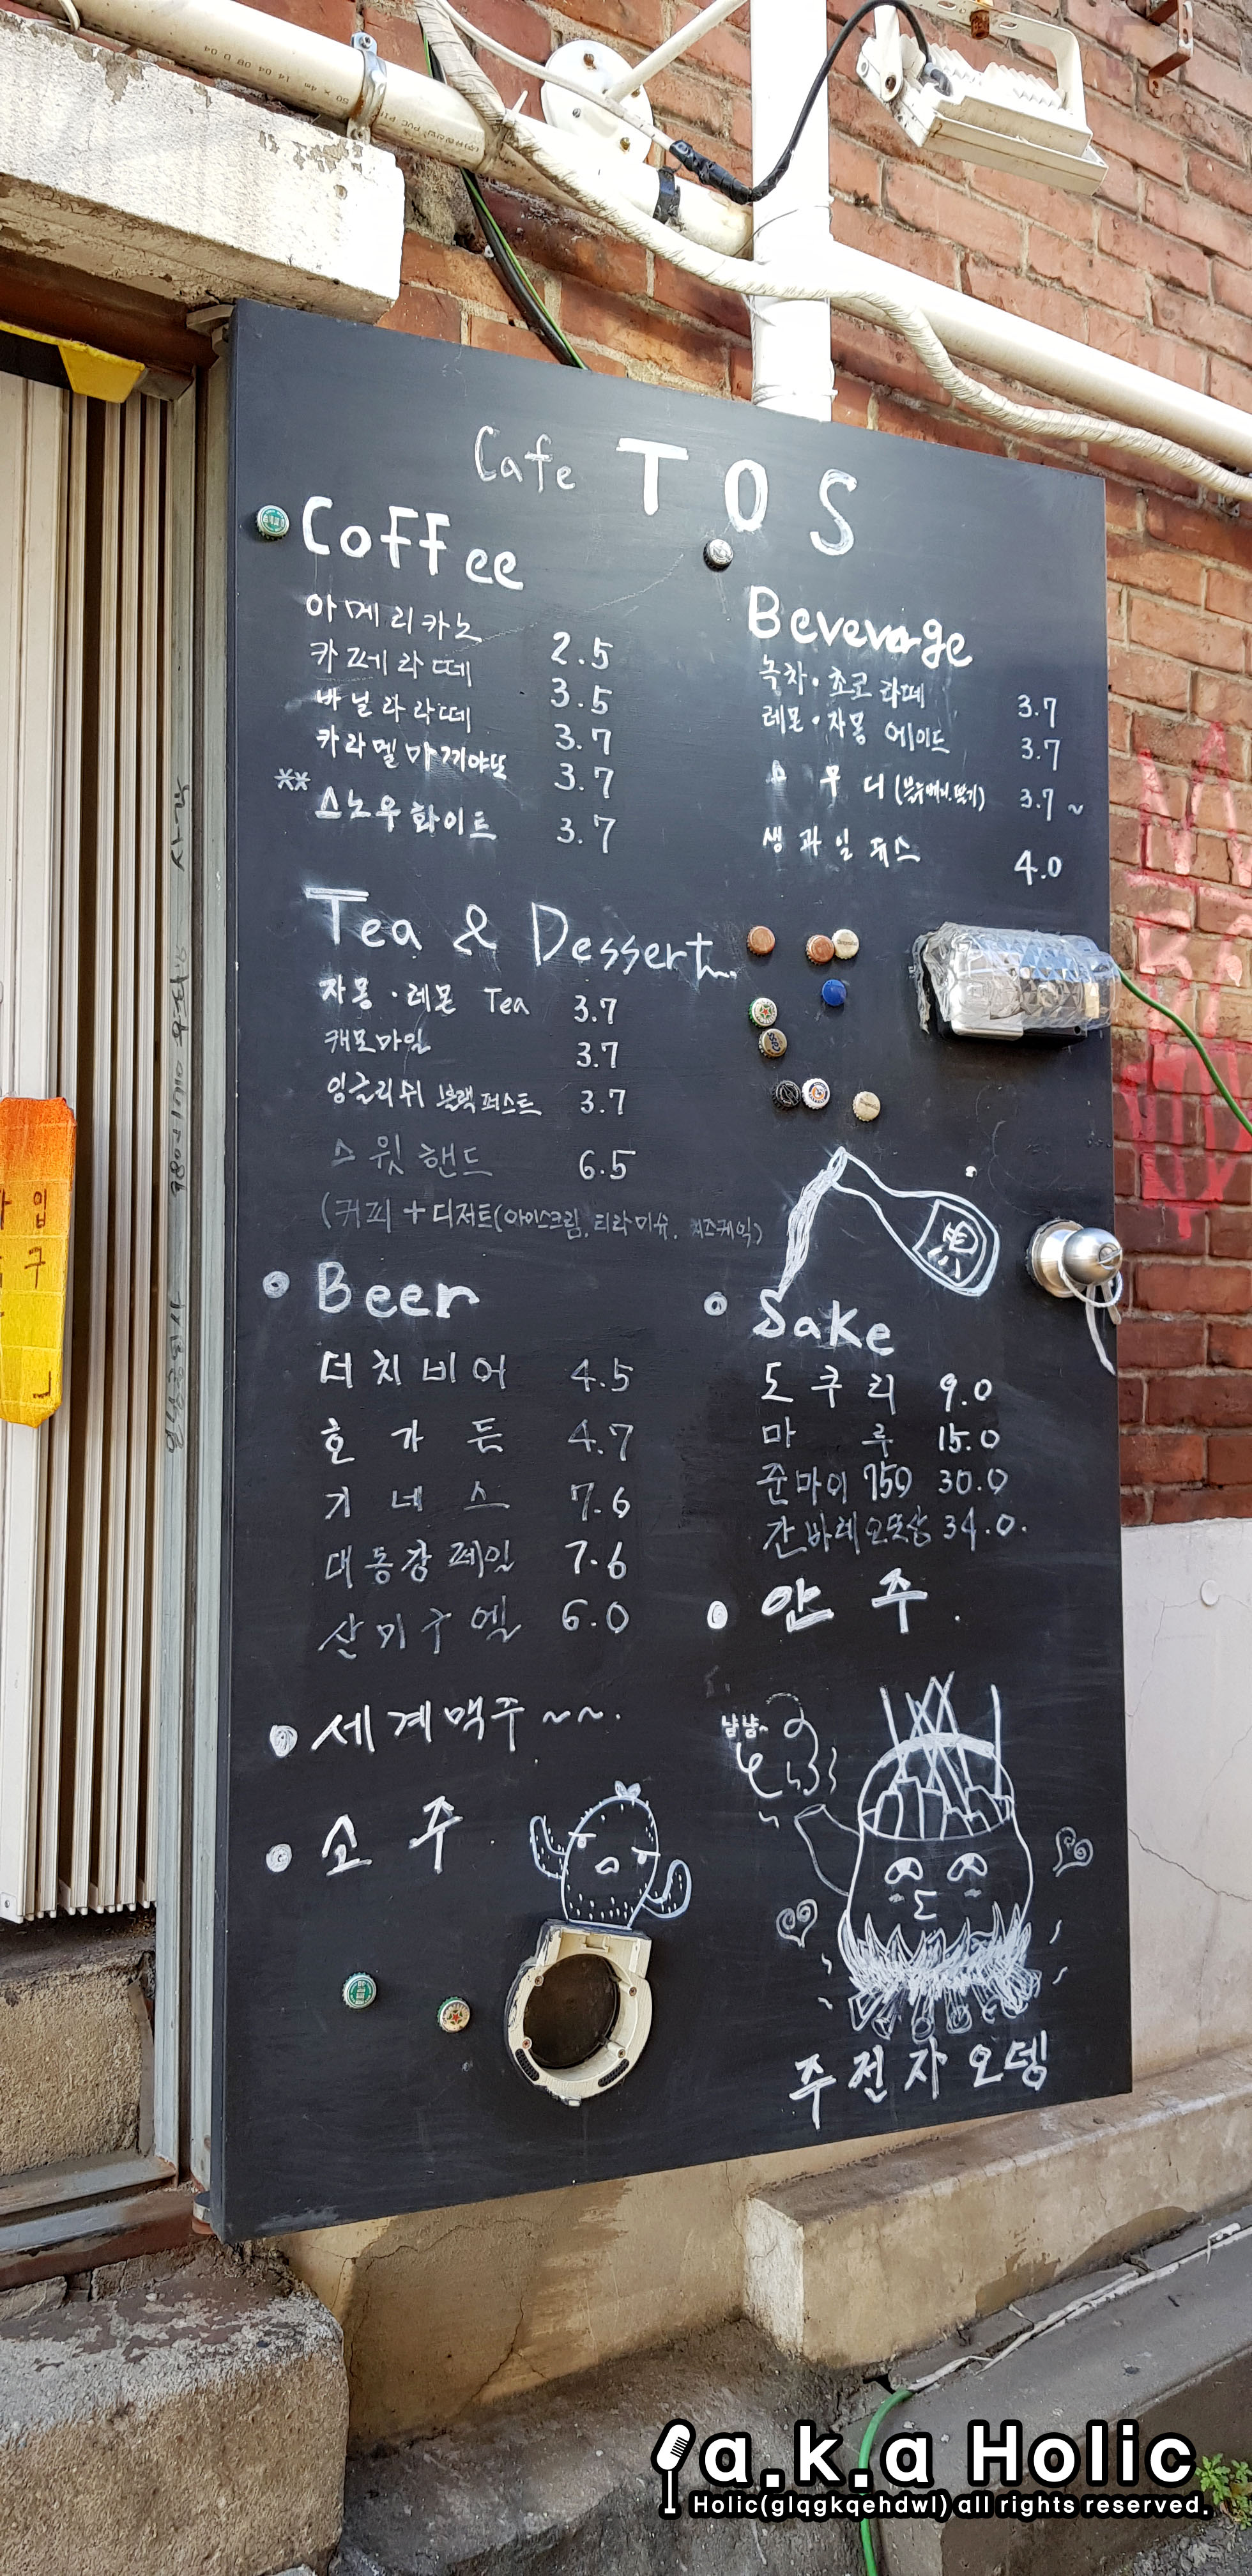 Cafe TOS
Coffee
아메리카노 2.5
카페라떼 3.5
바닐라라떼 3.7
카라멜마끼야또 3.7
**스노우화이트 3.7
Beverage
녹차·초코라떼 3.7
레몬·자몽 에이드 3.7
스무디(블루베리.딸기) 3.7~
생과일쥬스 4.0
Tea & Dessert
자몽·레몬 Tea 3.7
캐모마일 3.7
잉글리쉬 블랙퍼스트 3.7
스윗핸드 6.5
(커피+디저트(아이스크림.티라미슈.치즈케익)
Beer
더치비어 4.5
호가든 4.7
기네스 7.6
대동강페일 7.6
산미구엘 6.0
Sake
도쿠리 9.0
마루 15.0
준마이 750 30.0
간바레오또상 34.0.
안주.
세계맥주~~.
소주.
냠냠~
주전자오뎅
입
구
a.k.a Holic
Holic(glqgkqehdwl) all rights reserved.